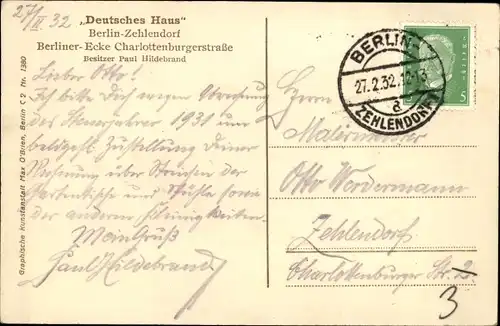 27/II 32
„Deutsches Haus"
Berlin-Zehlendorf
Berliner-Ecke Charlottenburgerstraße
Besitzer Paul Hildebrand
Lieber Otto!
Ich bitte Dich wegen
der Steuerjahres 1931 um
Zustellung Deiner
Rechnung über Streichen der
Gartentische und Stühle sowie
der anderen Kleinigkeiten.
Mein Gruß
Paul Hildebrand
Graphische Kunstanstalt Max O'Brien, Berlin C 2 Nr. 1380
BERLIN-
27.2.32.12-13
a
ZEHLENDORF
5
Herrn
Malermeister
Otto Wordermann
Zehlendorf
Charlottenburger Str. 2
3